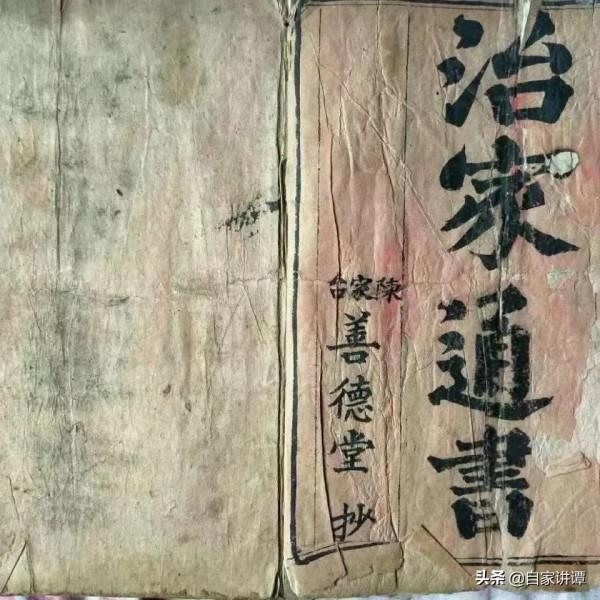 治家通書
陳家台
善德堂 抄
头条 @自家讲谭